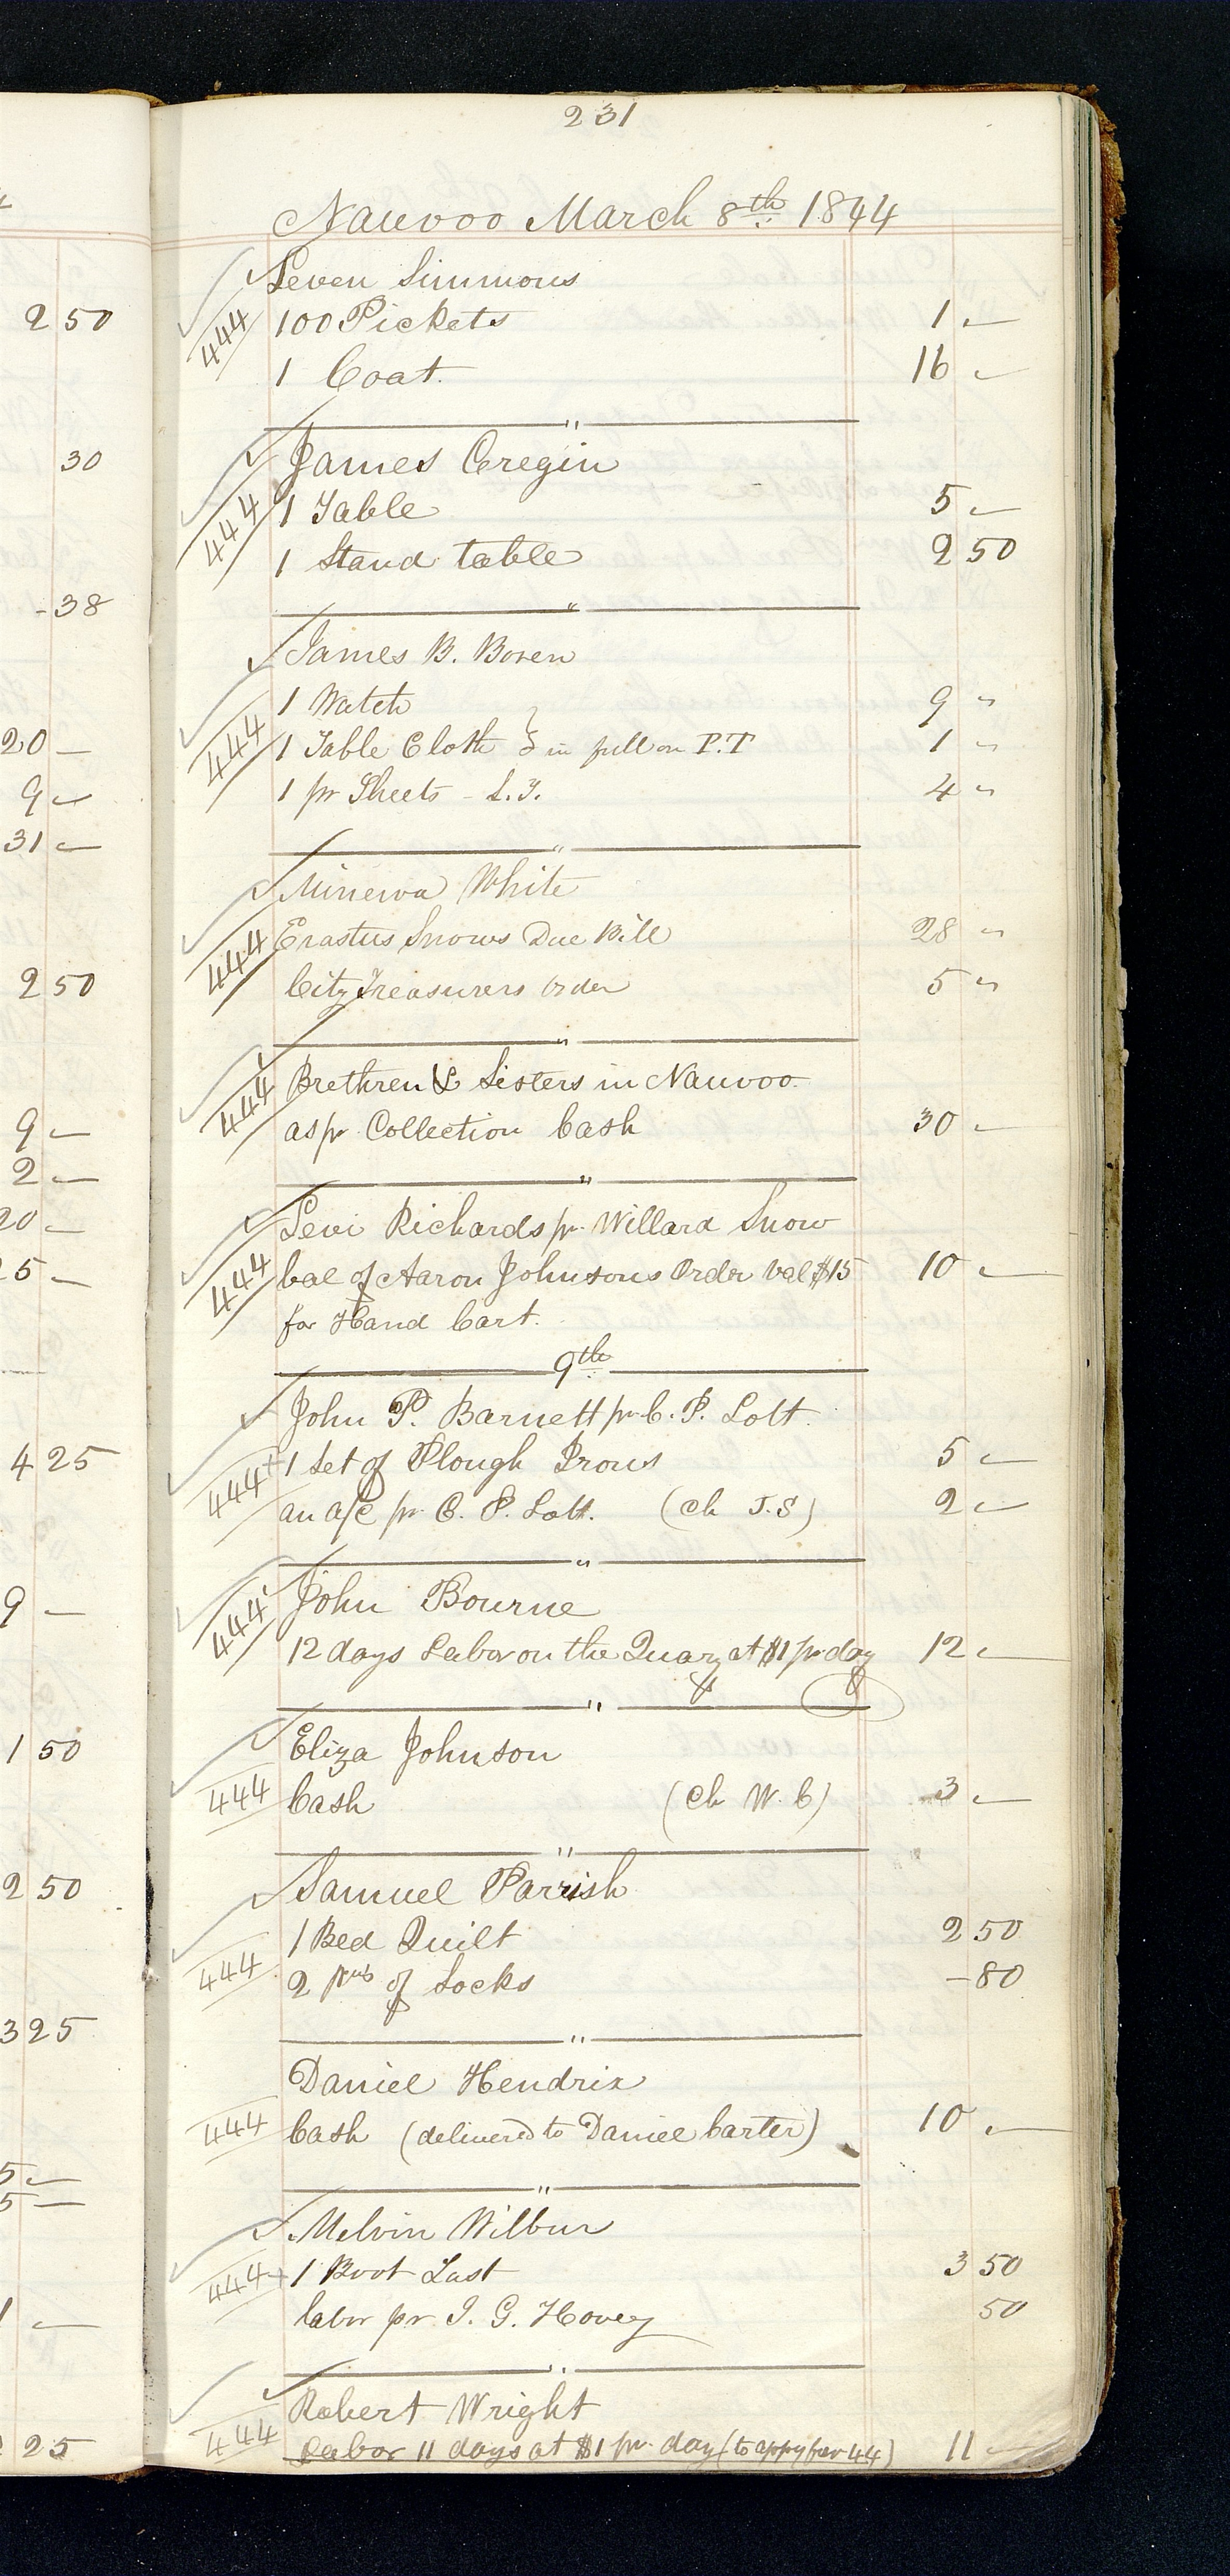 231
Nauvoo March 8th 1844
Seven Simmons
444 100 Pickets 1 "
1 Coat. 16 "
"
James Cregin
444 1 Table 5 "
1 Stand table 2 50
"
James B. Boren
1 Watch 9 "
444 1 Table Cloth } in full on P.T 1 "
1 pr Sheets - 4 "
"
Minerva White
444 Erastus Snows Due Bill 28 "
City Treasurers Order 5 "
"
444 Brethren & Sisters in Nauvoo
as pr Collection Cash 30 "
"
Levi Richards pr Willard Snow
444 bal of Aaron Johnsons Order val $15 10 "
for Hand Cart.
9th
John P. Barnett pr C. P. Lott.
444+ 1 Set of Plough Irons 5 "
an a/c pr C. P. Lott. (Ch J.S) 2 "
"
444 John Bourne
12 days Labor on the Quary at $1 pr day 12 "
"
Eliza Johnson
444 Cash (Ch W. C) 3 "
"
Samuel Parrish
1 Bed Quilt 2 50
444 2 prs of Socks - 80
"
Daniel Hendrix
444 Cash (delivered to Daniel Carter) 10 "
"
Melvin Wilbur
444+ 1 Boot Last 3 50
labor pr J. G. Hovey 50
"
Robert Wright
444 Labor 11 days at $1 pr day (to appy for 44) 11 "
2 50
30
- 38
20 -
9 "
31 "
2 50
9 "
2 "
5 -
4 25
9 -
1 50
2 50
3 25
5 "
5 -
25